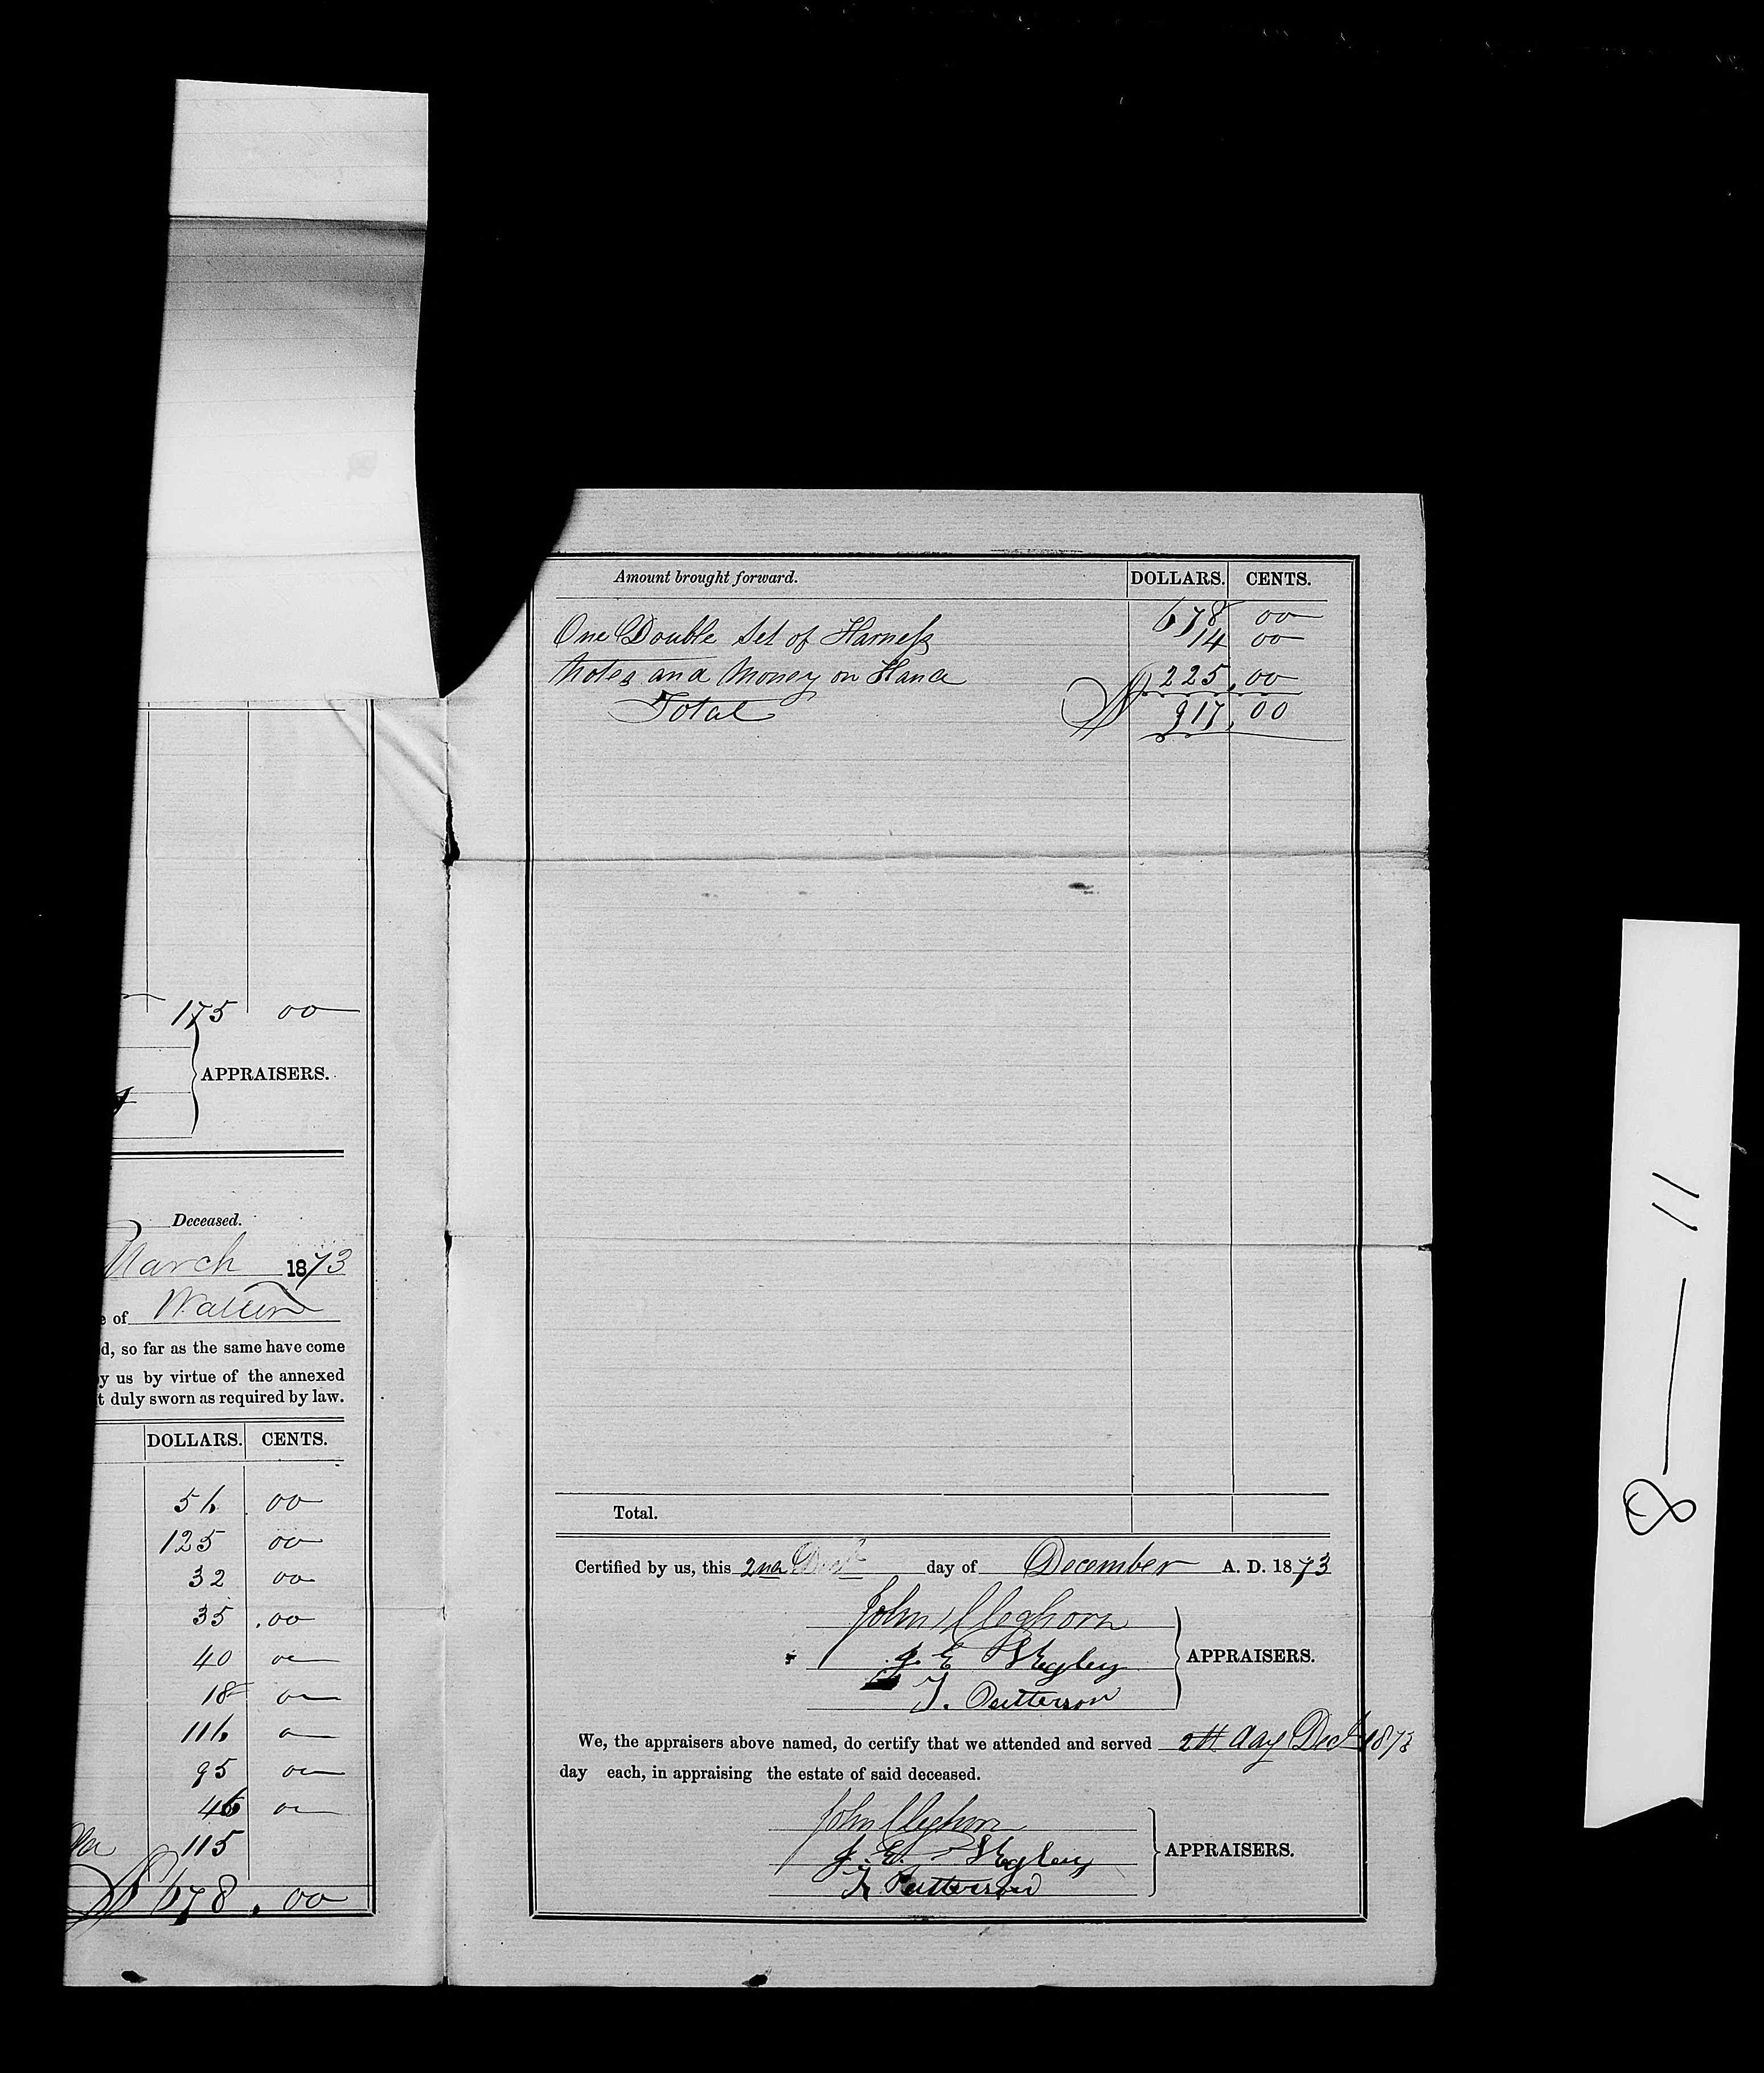 175 00
APPRAISERS.
Deceased.
March 1873
e of
d, so far as the same have come
by us by virtue of the annexed
t duly sworn as required by law.
DOLLARS. CENTS.
56 00
125 00
32 00
35 .00
40 00
18 00
116 00
95 00
46 00
115
$ 678.00
Amount brought forward. DOLLARS. CENTS.
678 00
One Double Set of Harness 14 00
Notes and Money on Hand 225.00
Total $ 917.00
Total.
Certified by us, this 2nd day of December A. D. 1873
John Cleghorn
J. E. Negley
T. Patterson
APPRAISERS.
We, the appraisers above named, do certify that we attended and served day Dec 1873
day each, in appraising the estate of said deceased.
John Cleghorn
J. E. Negley
T. Patterson
APPRAISERS.
8—11